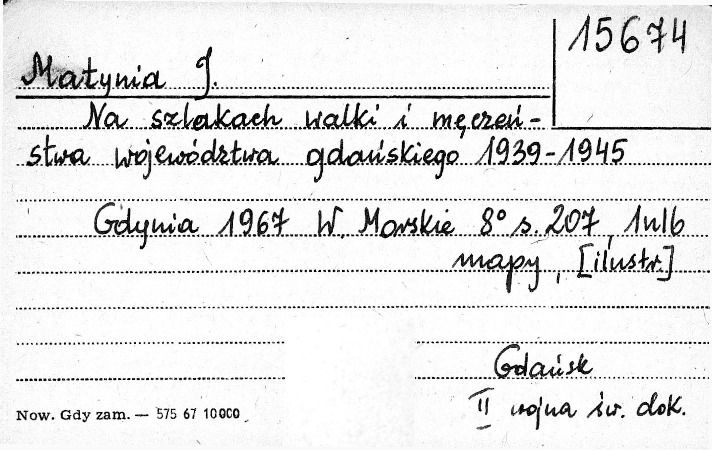 15674
Małynia J.
Na szlakach walki i męczeń-
stwa województwa gdańskiego 1939-1945
Gdynia 1967 W. Morskie 8° s. 207, 1nlb
mapy, [ilustr.]
Gdańsk
II wojna św. dok.
Now. Gdy zam. — 575 67 10000